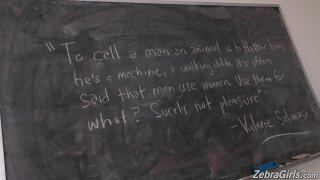 "To call a man an animal is to flatter him;
he's a machine, a walking dildo. It's often
said that men use women. Use them for
what? Surely not pleasure."
- Valerie Solanas
ZebraGirls.com